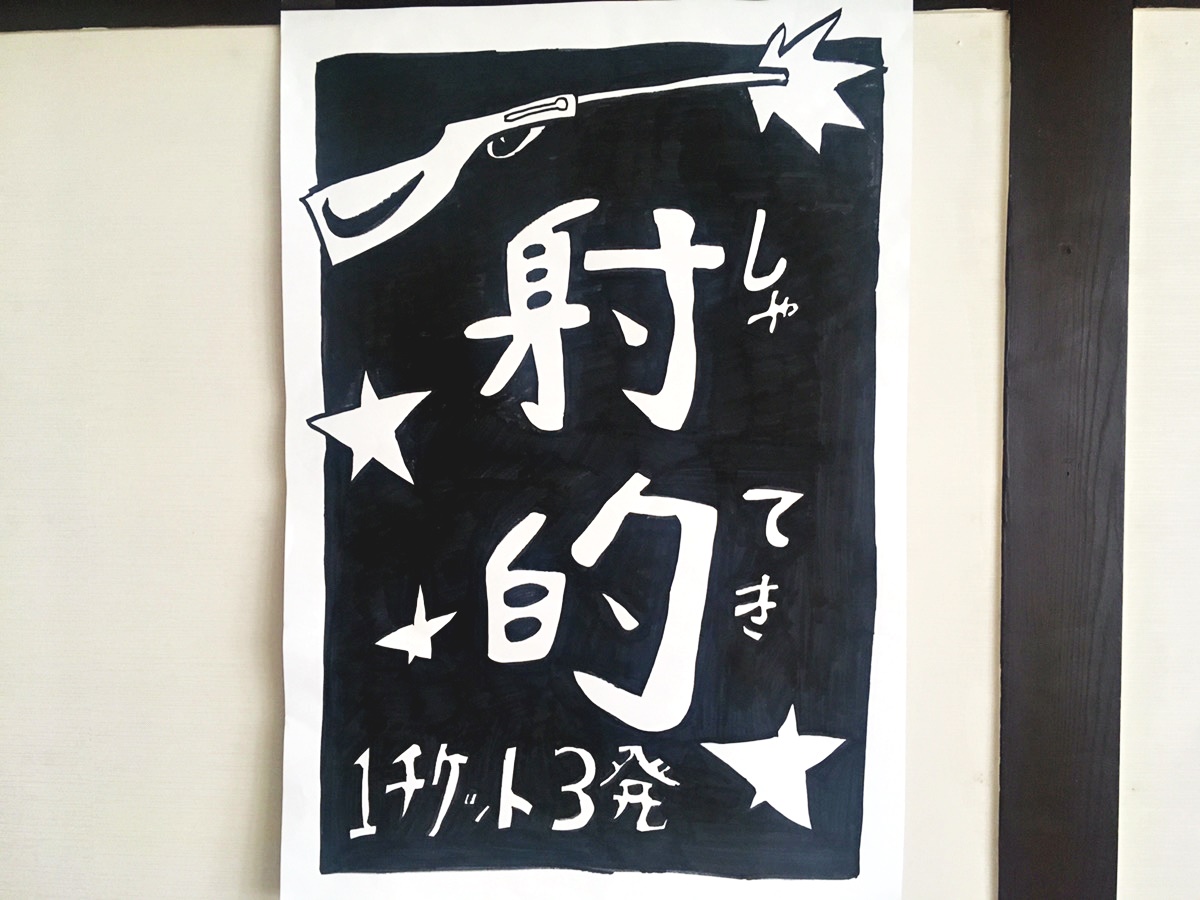 射的
しゃてき
1チケット3発